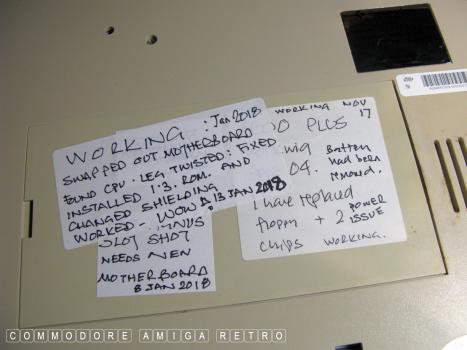 WORKING : JAN 2018
SWAPPED OUT MOTHERBOARD
FOUND CPU. LEG TWISTED: FIXED
INSTALLED 1.3. ROM. AND
CHANGED SHIELDING
WORKED - WOW! 13 JAN 2018
SLOT SHOT
NEEDS NEW
MOTHERBOARD
8 JAN 2018
WORKING NOV
17
O PLUS
Battery
had been
removed.
04.
I have replaced
floppy + 2 POWER
ISSUE
chips WORKING.
COMMODORE AMIGA RETRO